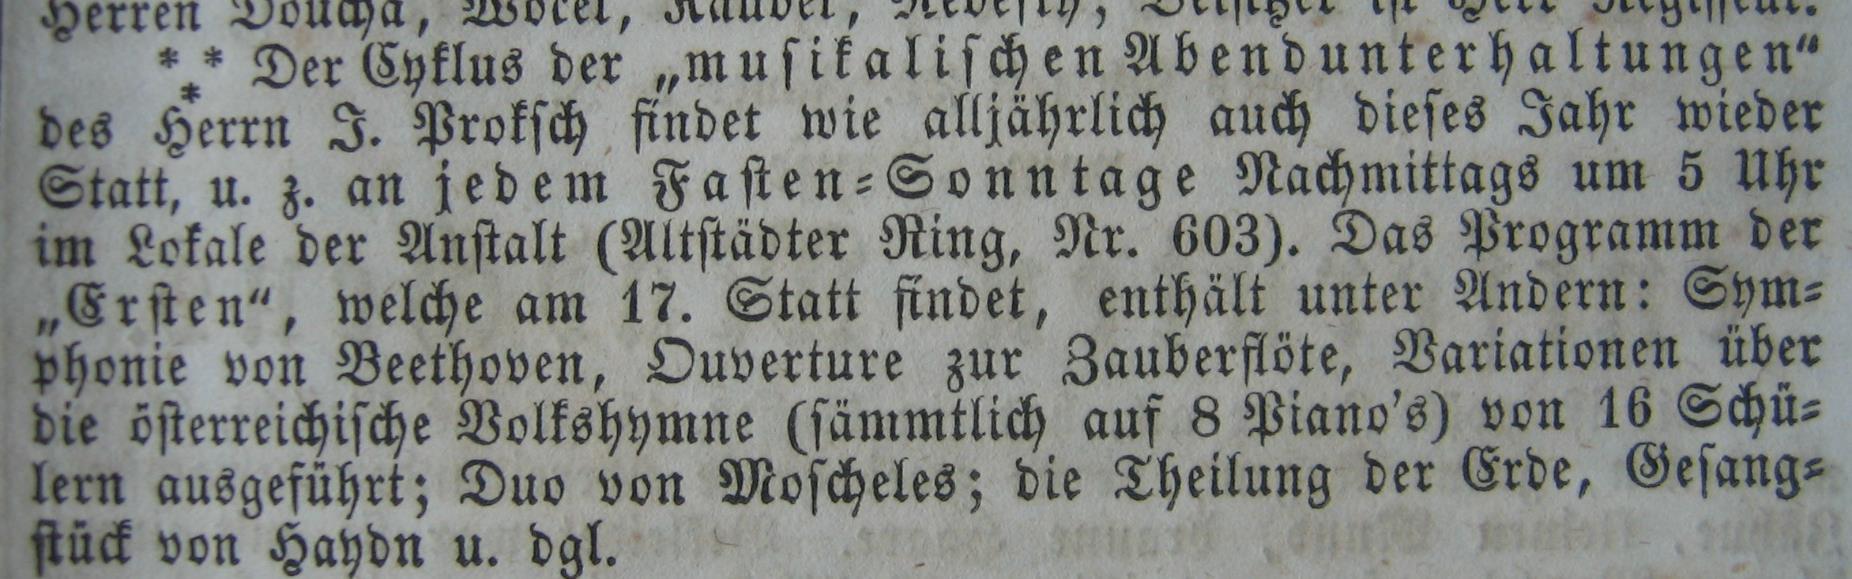 Herren Doucha,
* * Der Cyklus der „musikalischen Abendunterhaltungen“
*
des Herrn J. Proksch findet wie alljährlich auch dieses Jahr wieder
Statt, u. z. an jedem Fasten-Sonntage Nachmittags um 5 Uhr
im Lokale der Anstalt (Altstädter Ring, Nr. 603). Das Programm der
„Ersten“, welche am 17. Statt findet, enthält unter Andern: Sym-
phonie von Beethoven, Ouverture zur Zauberflöte, Variationen über
die österreichische Volkshymne (sämmtlich auf 8 Piano's) von 16 Schü-
lern ausgeführt; Duo von Moscheles; die Theilung der Erde, Gesang-
stück von Haydn u. dgl.